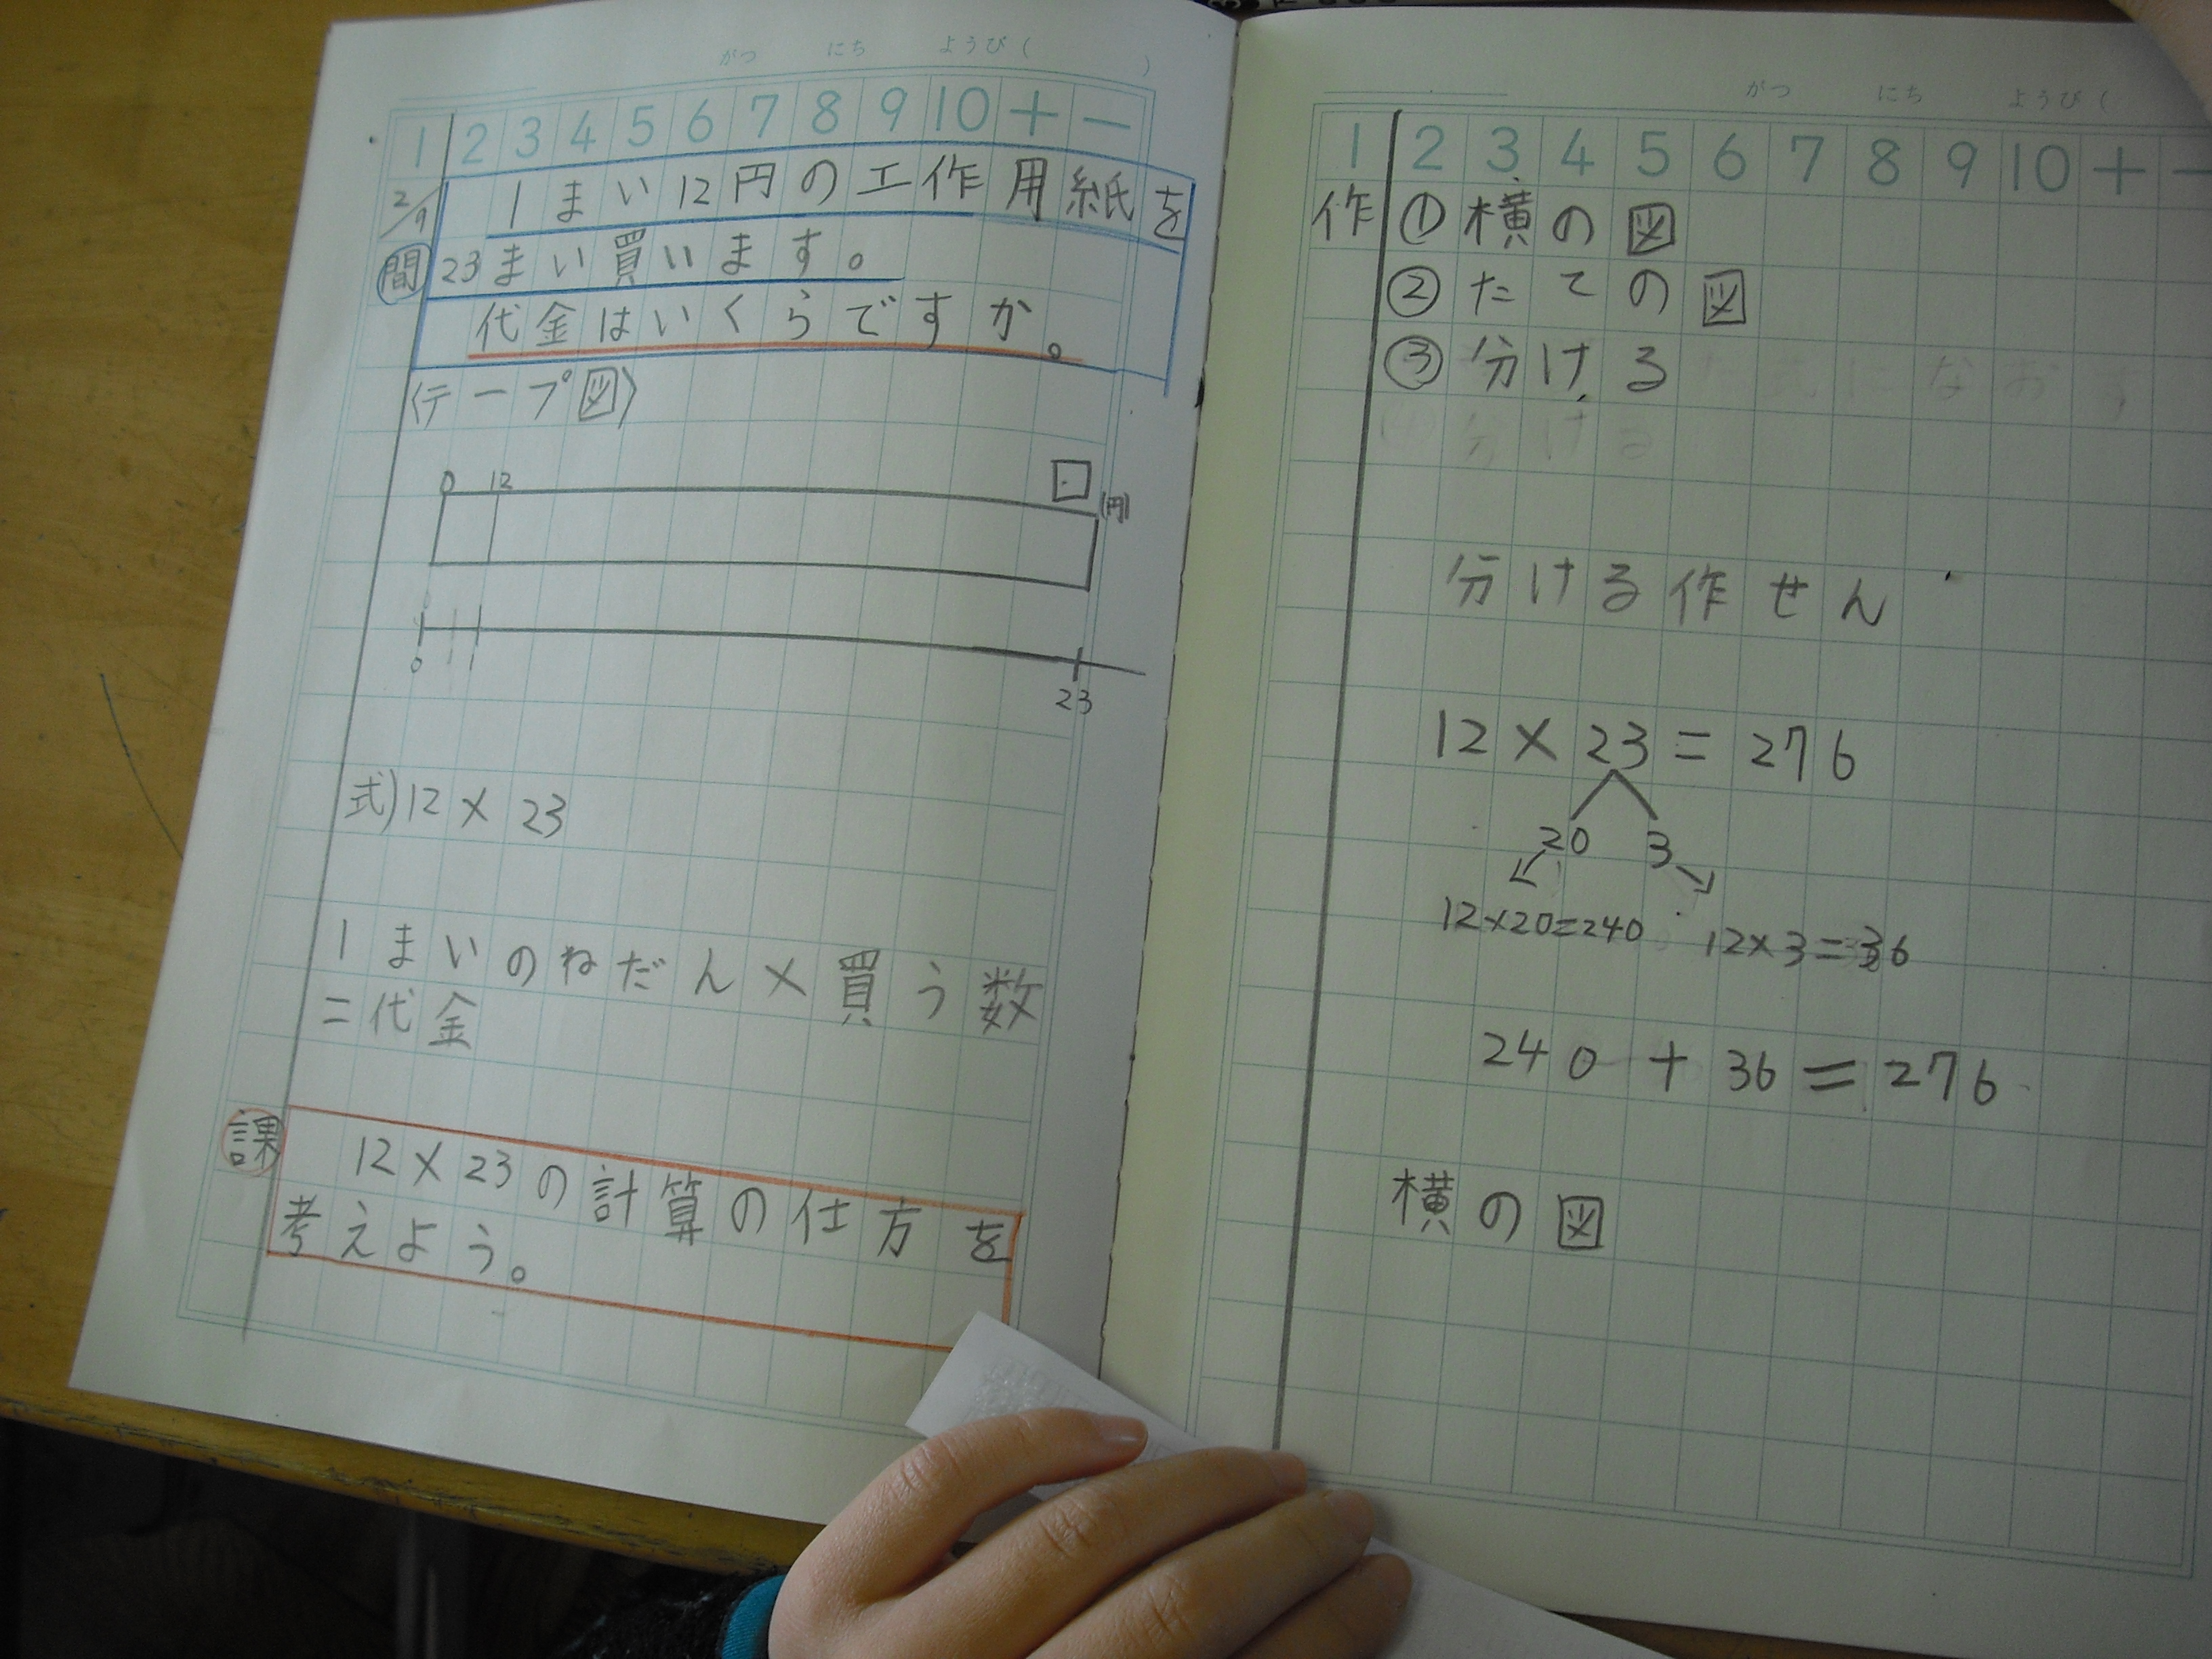 がつ にち ようび( )
1 2 3 4 5 6 7 8 9 10 + −
2/9
問 1まい12円の工作用紙を
23まい買います。
代金はいくらですか。
〈テープ図〉
0 12 □ (円)
0 1 23
式)12×23
1まいのねだん×買う数
=代金
課 12×23の計算の仕方を
考えよう。
がつ にち ようび(
1 2 3 4 5 6 7 8 9 10 + −
作 ①横の図
②たての図
③分ける
分ける作せん
12×23=276
20 3
12×20=240 12×3=36
240+36=276
横の図